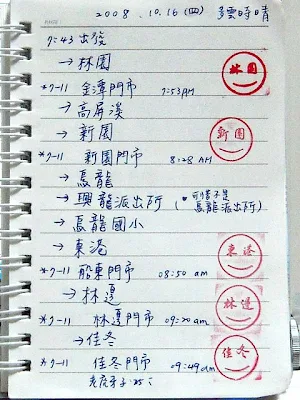 2008.10.16(四) 多雲時晴
7:43 出發
→林園
林園
*7-11 金潭門市 7:53AM
→高屏溪
→新園
新園
*7-11 新園門市 8:28 AM
→烏龍
→興龍派出所 (可惜不是烏龍派出所)
→烏龍國小
→東港
東港
*7-11 船東門市 08:50 am
→林邊
林邊
*7-11 林邊門市 09:20 am
→佳冬
佳冬
*7-11 佳冬門市 09:49 am